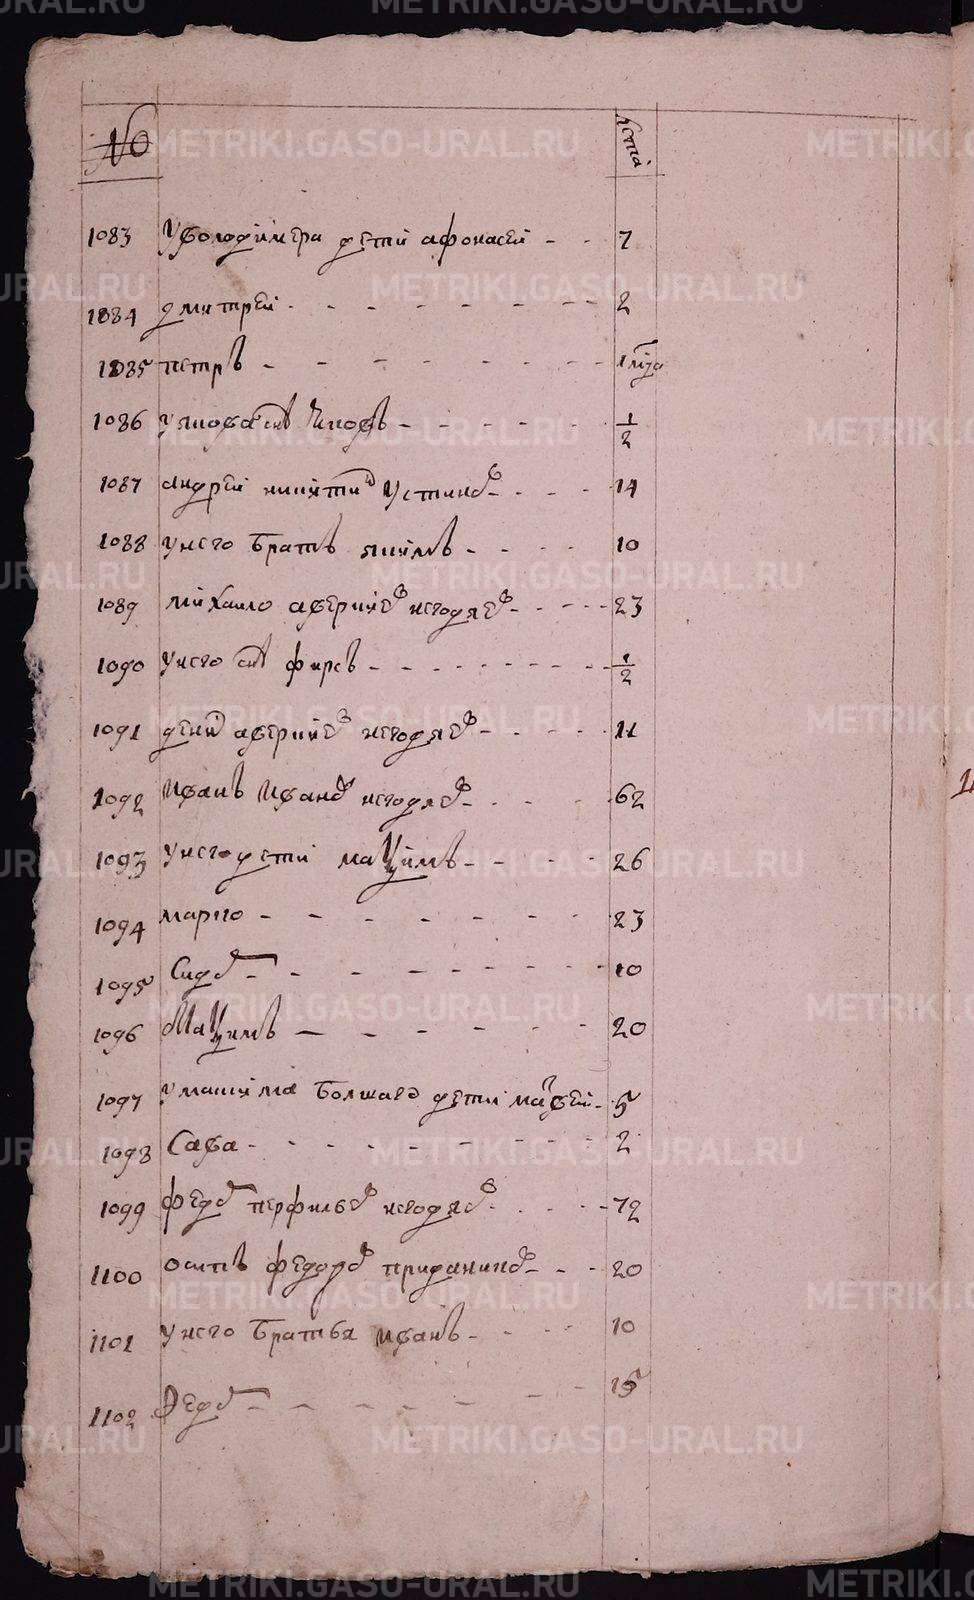 № лета
1083 У володимера дети афонасей 7
1084 дмитрей 2
1085 петръ 1 мца
1086 снъ 1/2
1087 андрей никитин Устинов 14
1088 у него братъ якимъ 10
1089 михаило аверкиев негодяев 23
1090 у него снъ фирсъ 1/2
1091 денис аверкиев негодяев 11
1092 иванъ иванов негодяев 62
1093 у него дети маѯимъ 26
1094 марко 23
1095 Сидор 10
1096 Маѯимъ 20
1097 у максима болшаго дети матвей 5
1098 Сава 2
1099 федор перфильев негодяев 72
1100 осипъ федоров приданников 20
1101 у него братья иванъ 10
1102 Федор 15